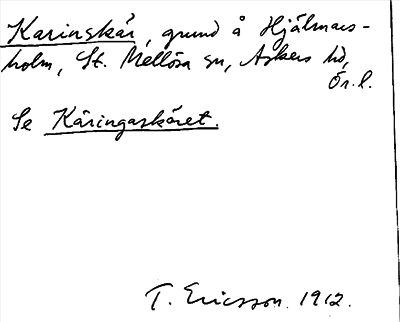 Karinskär, grund å Hjälmars-
holm, St. Mellösa sn, Askers hd,
Ör. l.
Se Käringaskäret.
T. Ericsson. 1912.